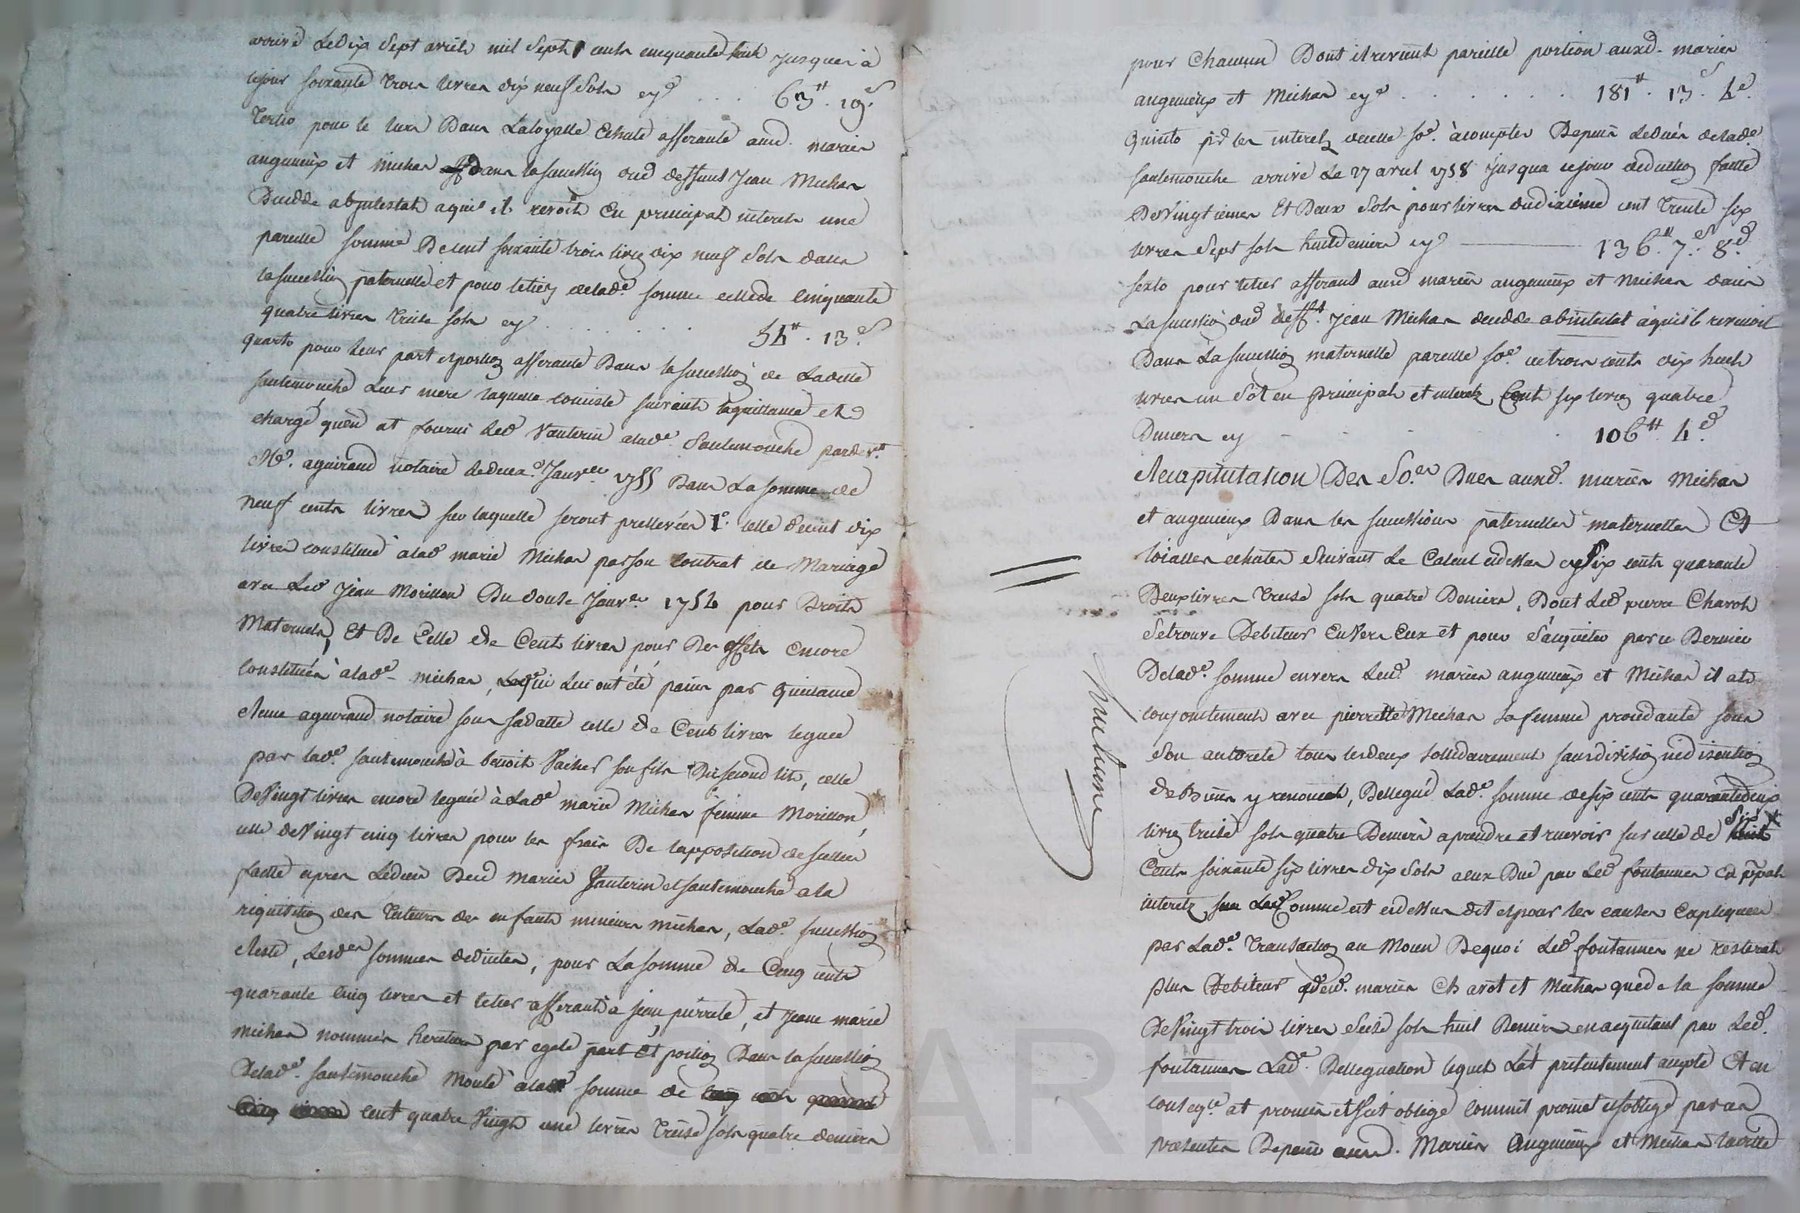 arrivé Ledix Sept avril mil Sept cents cinquante huit jusques à
cejour soixante trois livres dix neuf Sols cy 63# 19s
Tertio pour le tiers Dans Laloyalle Echute afferante aud. mariés
angenieux et michan dans la succession dud deffunt Jean Michan
Decedé abintestat aqui il revenoit En principal interets une
pareille somme De cent soixante trois livres dix neuf Sols dans
la succession paternelle et pour letiers delade somme celle de Cinquante
quatre livres treize sols cy 54# 13s
quarto pour leur part et portion afferante Dans la succession de Ladite
Santemouche Leur mere laquelle consiste suivant la quittance et
charge quen at fourni Led Vauterin alade Santemouche pardevt
Me aguiraud notaire le deux Janver 1755 Dans La somme de
neuf cents livres sur laquelle seront prellevées 1° celle de cent dix
livres constitué alade marie Michan par son Contrat de Mariage
avec Led Jean Morillon Du douze Janver 1754 pour Droits
Maternels, Et De Celle de Cents livres pour Des effets encore
Constitués à lade michan, qui Lui ont été païés par Guilaume
aguiraud notaire sous sa datte celle de Cents livres leguée
par lade Santemouche à benoit Vacher son fils Du second lit, celle
De Vingt livres encore leguée à Lade marie Michan femme Morillon,
celle de Vingt cinq livres pour les frais De l'apposition de scellés
faitte apres Ledeces Desd mariés Vauterin et Santemouche a la
requisition des Tuteurs des enfants mineurs michan, Lade succession
Reste, Lesdes sommes deduites, pour La somme de Cinq cents
quarante Cinq livres et letiers afferants à Jean pierrete, et Jeane marie
michan nommés heritiers par egale part et portion Dans la succession
Delade Santemouche Monte à la somme de
cent quatre Vingts une livres Treize sols quatre deniers
pour Chacun Dont il revient pareille portion auxd. mariés
angenieux et Michan cy 181# 13s 4d
Quinto pr les interets dicelle Se àcompter Depuis Ledeces delade
Santemouche arrivé Le 27 avril 1758 jusqua cejour deduction faitte
Des Vingtiemes Et Deux Sols pour livres dudixieme cent trente six
livres Sept sols huit deniers cy 136# 7s 8d
Sexto pour letiers afferant auxd mariés angenieux et Michan dans
La succession dud deft Jean Michan decedé abintestat à qui il revenoit
Dans La succession maternelle pareille Se de trois cents dix huit
livres un Sol en principal et interets Cent six livres quatre
Deniers cy 106# 4d
Recapitulation Des Soes Dues auxd. mariés Michan
et angenieux Dans les successions paternelles maternelles Et
loialles echutes Suivant Le Calcul cidessus cy Six cents quarante
Deux livres Treize sols quatre Deniers, Dont Led pierre Charot
Setrouve Debiteur Envers Eux et pour S'aquiter par ce Dernier
Delade somme envers Lesd mariés angenieux et Michan il at
conjointement avec pierrette Michan sa femme procedante sous
Son autorité tous lesdeux solidairement sans division ni discution
de Biens y renoncent, Dellegué Lade somme de six cents quarantedeux
livres treize sols quatre Deniers a prendre et recevoir sur celle de Sept
Cents soixante six livres dix Sols aeux Due par Led fontanier En ppal
interets comme est cidessus dit et pour les causes Expliquées
par Lade Transaction au Moien Dequoi Led fontanier ne resterat
plus Debiteur desd. mariés Charot et Michan que de la somme
De Vingt trois livres Seize sols huit Deniers en aquitant par Led.
fontanier Lade Dellegation lequel L'at presentement accepté Et en
conseqce at promis et s'est obligé Comme il promet et s'oblige par ces
presentes De païer auxd. Mariés Angenieux et Michan laditte
huitieme